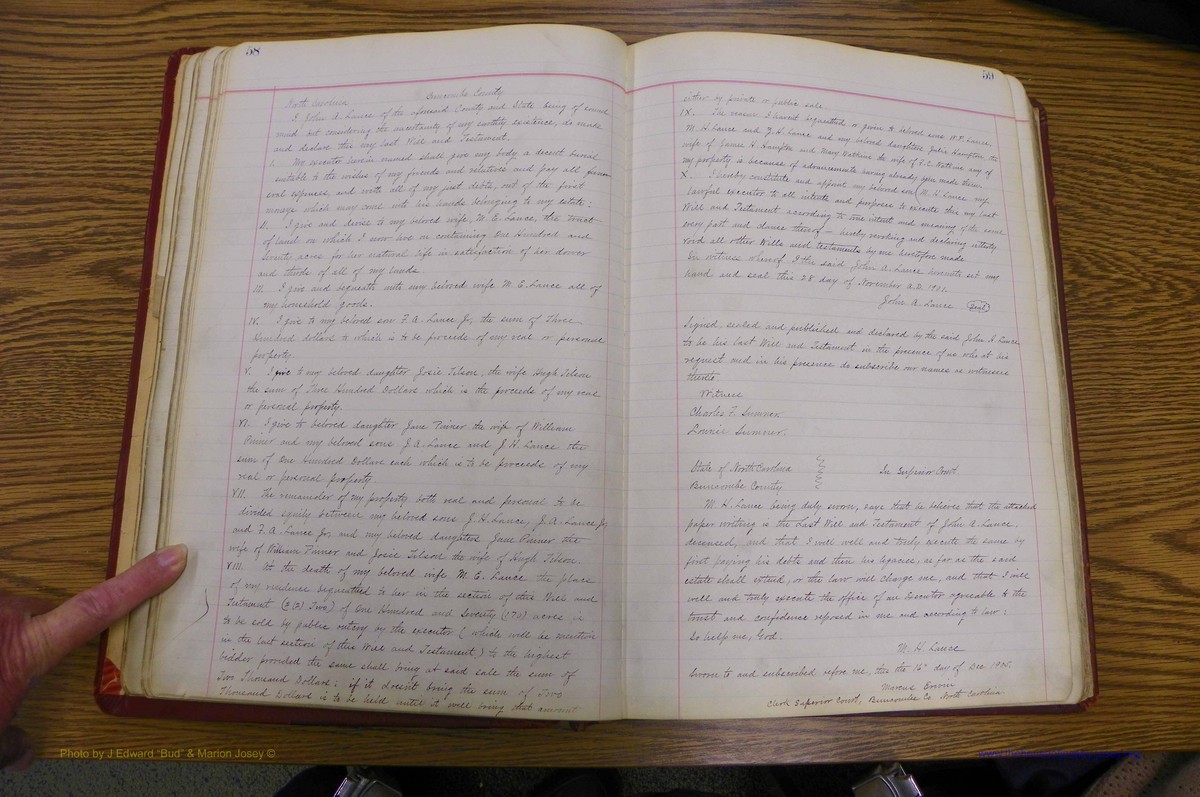 58
North Carolina Buncombe County
I John A. Lance of the aforesaid County and State being of sound
mind but considering the uncertainty of my earthly existence, do make
and declare this my last Will and Testament.
I. My executor herein named shall give my body a decent burial
suitable to the wishes of my friends and relatives and pay all funeral
expenses, and with all of my just debts, out of the first
moneys which may come into his hands belonging to my estate;
II. I give and devise to my beloved wife, M. E. Lance, the tract
of land on which I now live in containing One Hundred and
Seventy acres for her natural life in satisfaction of her dower
and thirds of all of my lands.
III. I give and bequeath unto my beloved wife M. E. Lance all of
my household goods.
IV. I give to my beloved son F. A. Lance Jr, the sum of Three
Hundred dollars to which is to be proceeds of my real or personal
property.
V. I give to my beloved daughter Josie Tilson, the wife Hugh Tilson
the sum of Three Hundred Dollars which is the proceeds of my real
or personal property.
VI. I give to beloved daughter Jane Pinner the wife of William
Pinner and my beloved sons J. A. Lance and J. H. Lance the
sum of One Hundred Dollars each which is to be proceeds of my
real or personal property.
VII. The remainder of my property both real and personal to be
divided equily between my beloved sons J. H. Lance, J. A. Lance Jr,
and F. A. Lance Jr, and my beloved daughters Jane Pinner the
wife of William Pinner and Josie Tilson the wife of Hugh Tilson.
VIII. At the death of my beloved wife M. E. Lance the place
of my residence bequeathed to her in the section of this Will and
Testament (2) Two) of One Hundred and Seventy (170) acres is
to be sold by public outcry by the executor (which will be mention
in the last section of this Will and Testament) to the highest
bidder provided the same shall bring at said sale the sum of
Two Thousand Dollars; if it doesn't bring the sum of Two
Thousand Dollars is to be held until it will bring that amount
59
either by private or public sale
IX. The reason I havent bequeathed or given to beloved sons W. P. Lance
M. H. Lance and G. S. Lance and my beloved daughters Julia Hampton the
wife of James H. Hampton and Mary Watkins the wife of E. C. Watkins any of
my property is because of advancements having already been made them.
X. I hereby constitute and appoint my beloved son (M. H. Lance my
lawful executor to all intents and purposes to execute this my last
Will and Testament according to true intent and meaning of the same
every part and clause thereof - hereby revoking and declaring utterly
void all other Wills and testaments by me heretofore made
In witness whereof I the said John A. Lance hereunto set my
hand and seal this 28 day of November A.D. 1901.
John A. Lance (Seal)
Signed sealed and published and declared by the said John A Lance
to be his last Will and Testament in the presence of us who at his
request and in his presence do subscribe our names as witnesses
thereto.
Witness
Charles F. Sumner.
Lonnie Sumner.
State of North Carolina In Superior Court.
Buncombe County
M. H. Lance being duly sworn, says that he believes that the attached
paper writing is the Last Will and Testament of John A Lance.
deceased, and that I will well and truly execute the same by
first paying his debts and then his legacies, as far as the said
estate shall extend, or the law will charge me, and that I will
well and truly execute the office of an Executor agreeable to the
trust and confidence reposed in me and according to law:
So help me, God.
M. H. Lance
Sworn to and subscribed before me, this the 16th day of Dec. 1905.
Marcus Erwin
Clerk Superior Court, Buncombe Co. North Carolina.
Photo by J Edward "Bud" & Marion Josey ©